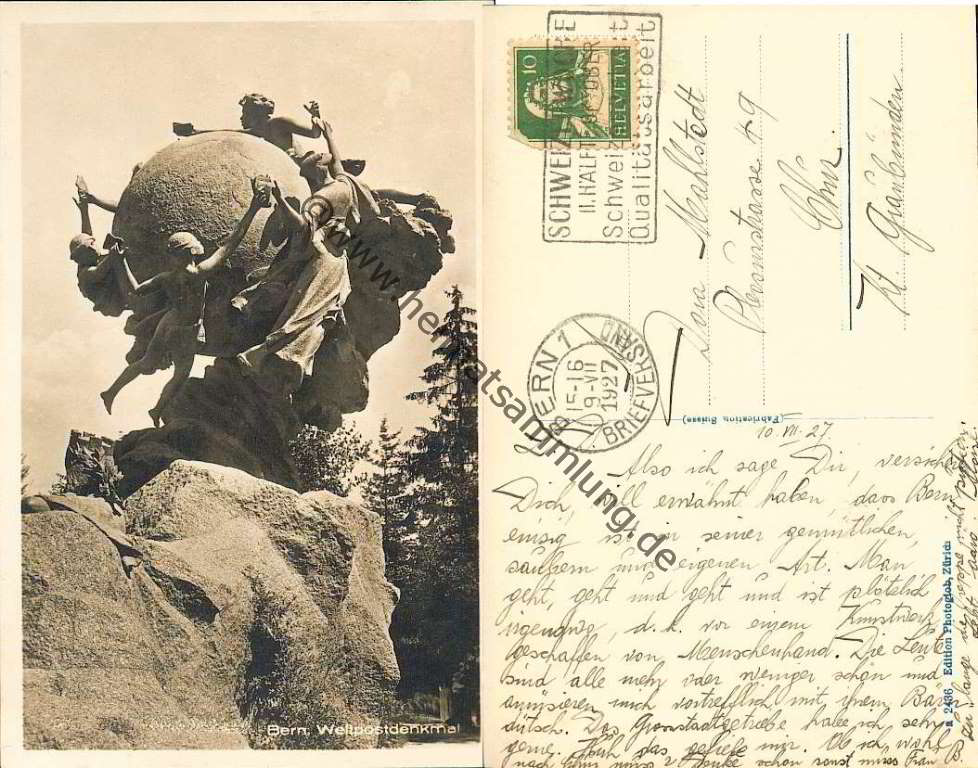 Bern. Weltpostdenkmal
© www.heimatsammlung.de
10
HELVETIA
SCHWEIZERWOCHE
II. HÄLFTE OKTOBER
Schweiz
Qualitätsarbeit
BERN 1
15-16
9-VII
1927
BRIEFVERSAND
Dora Mahlstedt
Plessurstrasse 49
Chur
Kt Graubünden
(Fabrication Suisse)
a 2436 Edition Photoglob, Zürich
10. VII. 27
Also ich sage Dir, versich
Dich, soll erwähnt haben, dass Bern
einzig ist in seiner gemütlichen,
saubern und eigenen Art. Man
geht, geht und geht und ist plötzlich
irgendwo, d.h. vor einem Kunstwerk
geschaffen von Menschenhand. Die Leute
sind alle mehr oder weniger schön und
amüsieren mich vortrefflich mit ihrem Bärn
dütsch. Das Grosstadtgetriebe habe ich sehr
gerne. Huh das geliebe mir. Ob ich wohl
nach
schon sonst muss Frau B.
lange die
nicht